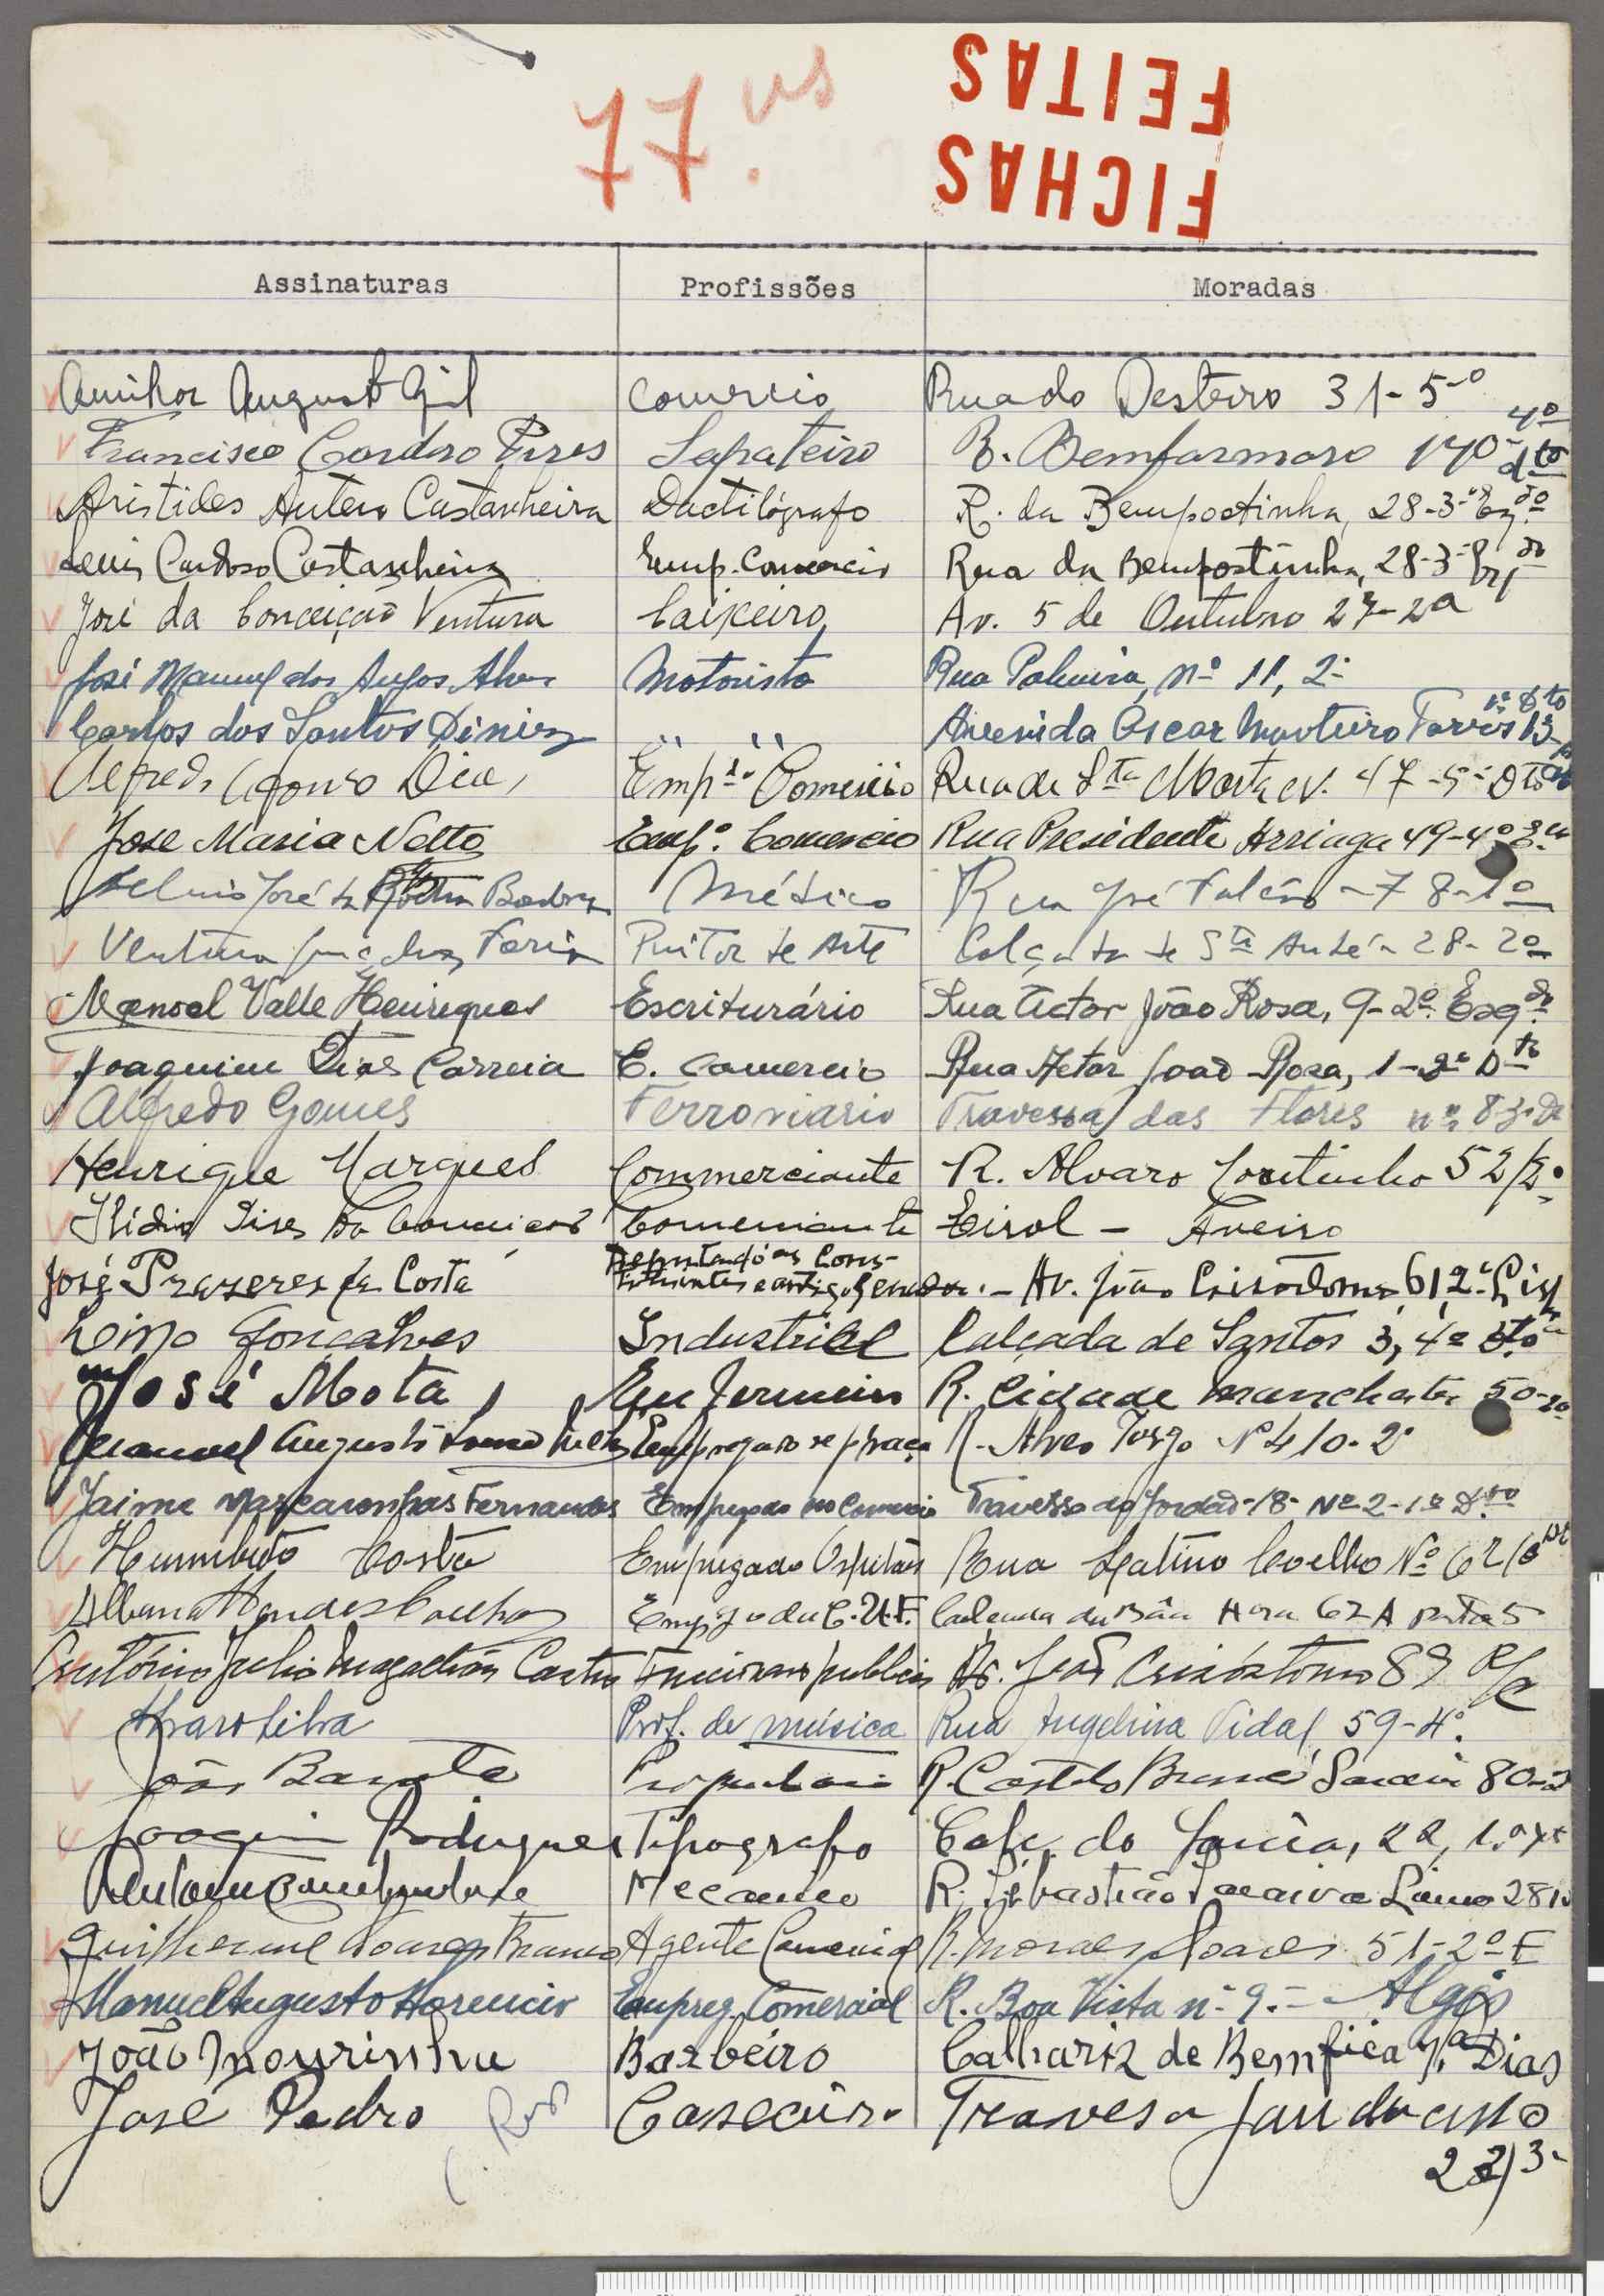 77
FICHAS
FEITAS
Assinaturas Profissões Moradas
Augusto Gil Comercio Rua do Desterro 31-5º
Francisco Cardoso Pires Sapateiro R. Bemformoso 170-4º dto
Aristides Antero Castanheira Dactilógrafo R. da Bempostinha, 28-3º Esqdo
Luis Cardoso Castanheira Emp. Comercio Rua da Bempostinha, 28-3º Esqdo
José da Conceição Ventura Caixeiro Av. 5 de Outubro 27-2º
José Manuel dos Anjos Alves Motorista Rua Palmira, nº 11, 2º
Carlos dos Santos Diniz " " Avenida Oscar Monteiro Torres 13 1º Dto
Alfredo Afonso Dias Empdo Comercio Rua de Sta Marta N. 47-5º Dto
José Maria Netto Empº. Comercio Rua Presidente Arriaga 49-4º
José da Médico Rua José Falcão - 78-1º
Ventura Faria Pintor de Arte Calçada de Sto André 28-2º
Manoel Valle Henriques Escriturário Rua Actor João Rosa, 9-2º Esqdo
Joaquim Dias Correia E. Comercio Rua Actor João Rosa, 1-2º Dto
Alfredo Gomes Ferroviario Travessa das Flores nº 8 3º D
Henrique Marques Commerciante R. Alvaro Coutinho 52/2º
Ilidio Pires da Conceição Comerciante Eirol - Aveiro
José Prazeres da Costa Deputado às Constituintes e antigo Senador. - Av. João Crisostomo 61 2º
Lino Gonçalves Industrial Calçada de Santos 3, 4º Dto
José Mota Enfermeiro R. Cidade Manchester 50-2º
Manuel Augusto Empregado de praça R. Alves Torgo Nº 410-2º
Jaime Mascarenhas Fernandes Empregado no Comercio Travessa do Jordão-18-Nº 2-1º Dto
Humberto Costa Empregado Rua Latino Coelho Nº 62
Albano Mendes C.U.F. Calçada da Boa Hora 62 A porta 5
António Julio Magalhães Castro Funcionario publico Av. João Crisóstomo 89 R/C
Alvaro Silva Prof. de música Rua Angelina Vidal, 59-4º.
João Barata R. Castelo Branco Saraiva 80-2
Joaquim Rodrigues Tipografo Calç. do Garcia, 22, 1º
Mecanico R. Sebastião Saraiva Lima 28
Guilherme Soares Franco Agente Comercial R. Moraes Soares 51-2º E
Manuel Augusto Empreg. Comercial R. Boa Vista nº 9.- Algés
João Mourinho Barbeiro Calhariz de Bemfica Dias
José Pedro Travessa
22/3º